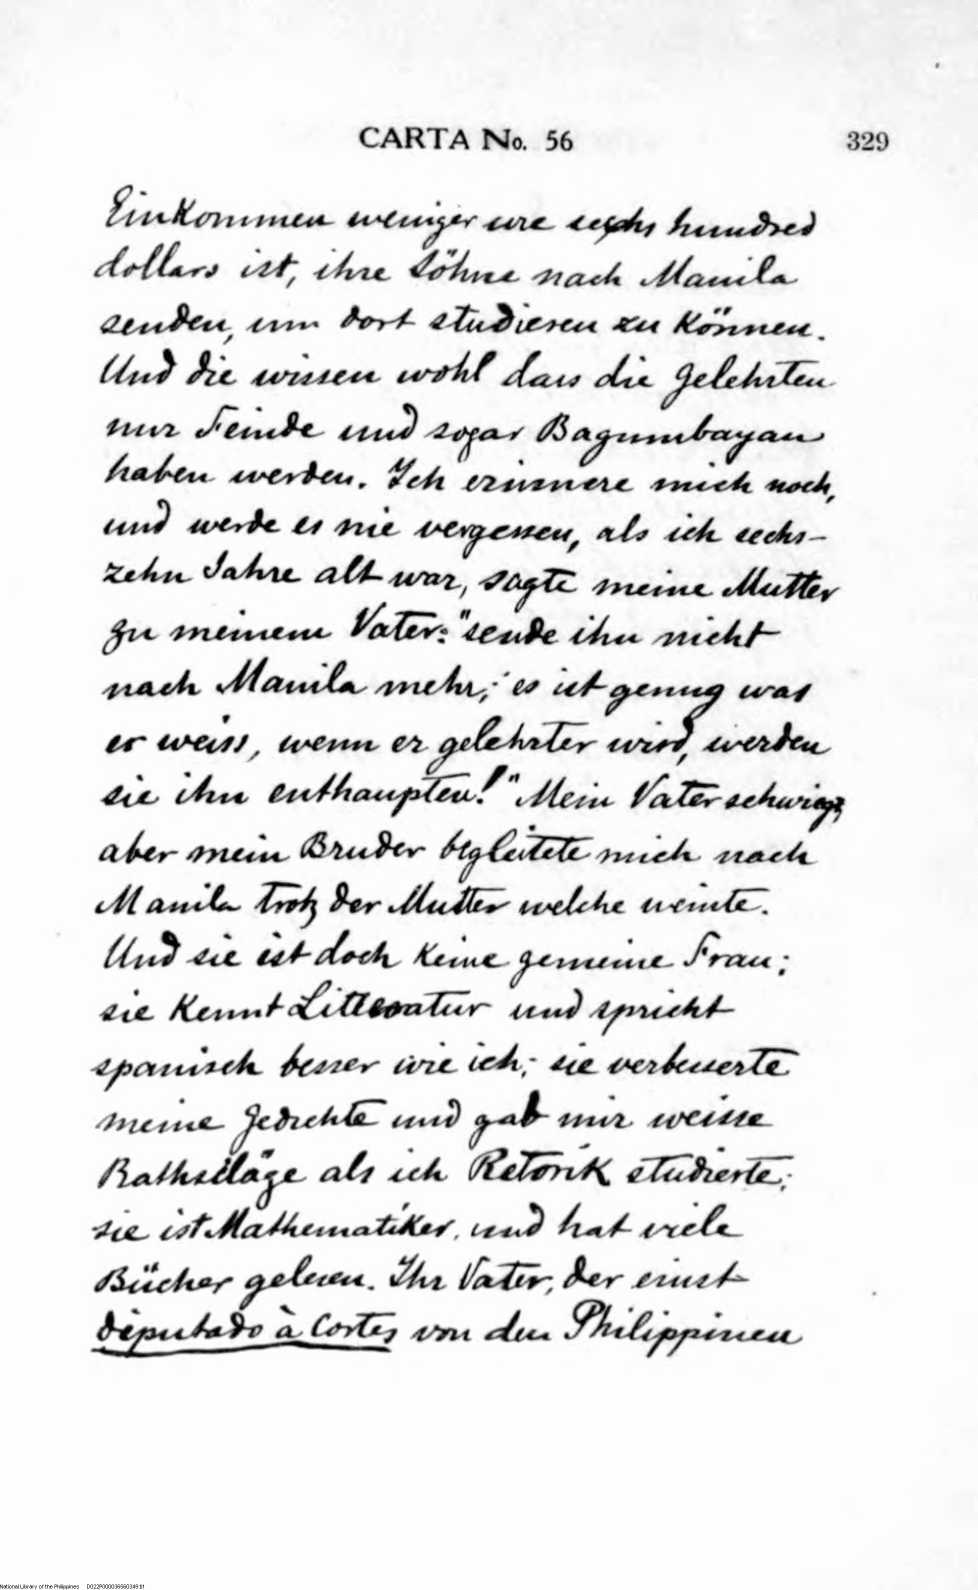 CARTA No. 56 329
Einkommen weniger wie sechs hundred
dollars ist, ihre Söhne nach Manila
senden, um dort studieren zu können.
Und die wissen wohl dass die Gelehrten
nur Feinde und sogar Bagumbayan
haben werden. Ich erinnere mich noch,
und werde es nie vergessen, als ich sechs-
zehn Jahre alt war, sagte meine Mutter
zu meinem Vater: "sende ihn nicht
nach Manila mehr; es ist genug was
er weiss, wenn er gelehrter wird, werden
sie ihn enthaupten!" Mein Vater schwieg,
aber mein Bruder begleitete mich nach
Manila trotz der Mutter welche weinte.
Und sie ist doch keine gemeine Frau;
sie kennt Litteratur und spricht
spanisch besser wie ich; sie verbesserte
meine Gedichte und gab mir weisse
Rathsläge als ich Retorik studierte;
sie ist Mathematiker, und hat viele
Bücher gelesen. Ihr Vater, der einst
députado à Cortes von den Philippinen
National Library of the Philippines